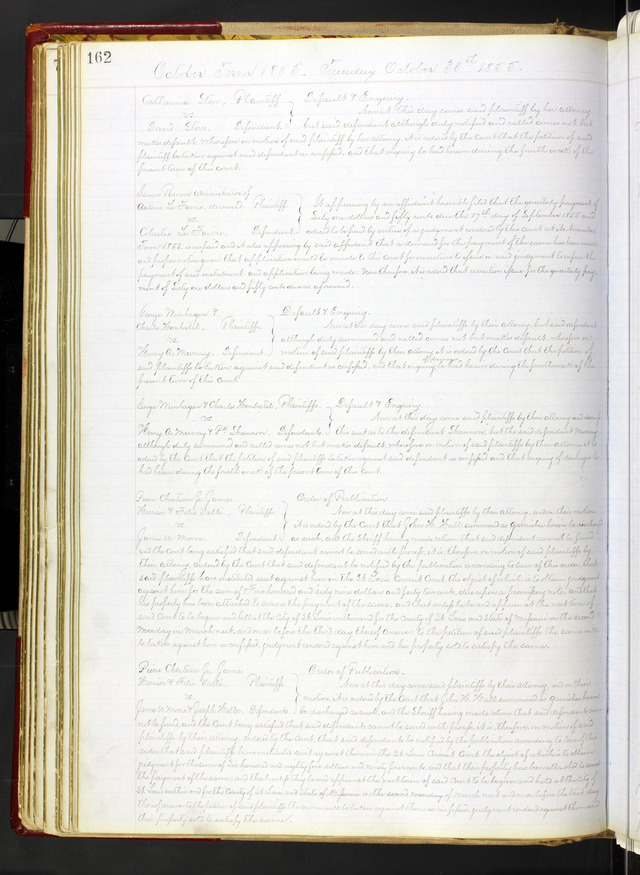 162
October Term 1855. Tuesday October 30th 1855.
Catharine Stow, Plaintiff Default & Enquiry.
vs. Now at this day comes said plaintiff by her attorney
David Stow. Defendant. but said defendant although duly notified and called comes not but
makes default. Wherefore on motion of said plaintiff by her attorney it is ordered by the Court that the petition of said
plaintiff be taken against said defendant as confessed, and that enquiry be had herein during the fourth week of the
present term of this court.
administrator of
deceased Plaintiff It appearing by an affidavit herewith filed that the quarterly payment of
vs. Sixty one dollars and fifty cents due the 17th day of September 1855 and
Defendant. ordered to be paid by virtue of a judgment rendered by this Court at
Term 1853, is unpaid and it also appearing by said affidavit that a demand for the payment of the same has been made
and proper notice given that application would be made to this Court for execution to issue on said judgment to enforce the
payment of said instalment and application being made. Now therefore, it is ordered that execution issue for the quarterly pay-
ment of Sixty one dollars and fifty cents due as aforesaid.
George & Default & Enquiry.
Charles Plaintiffs. Now at this day come said plaintiffs by their attorney, but said defendant
vs. although duly summoned and called comes not but makes default, wherefore on
Henry A. Defendant. motion of said plaintiffs by their attorney it is ordered by the Court that the petition of
said plaintiffs be taken against said defendant as confessed, and that enquiry be had herein during the fourth week of the
present term of this Court.
George & Charles Plaintiffs Default & Enquiry
vs. Now at this day come said plaintiffs by their attorney and
Henry A. & Shannon, Defendants this suit as to the defendant Shannon, but the said defendant
although duly summoned and called comes not but makes default, wherefore on motion of said plaintiffs by their attorney it is
ordered by the Court that the petition of said plaintiffs be taken against said defendant as confessed and that enquiry of damages be
had herein during the fourth week of the present term of this Court.
Pierre Chouteau Jr. James
Harrison & Felix Valle. Plaintiffs Order of Publication
vs. Now at this day come said plaintiffs by their attorney, and on their motion
James A. Defendant it is ordered by the Court that John H. Hall summoned as garnishee herein be discharged
as such, and the Sheriff having made return that said defendant cannot be found
and the Court being satisfied that said defendant cannot be served with process, it is, therefore, on motion of said plaintiffs by
their attorney ordered by the Court that said defendant be notified by publication according to law of this order, that
said plaintiffs have instituted suit against him in the St Louis Circuit Court the object of which is to obtain judgment
against him for the sum of hundred and sixty nine dollars and forty two cents, due upon a promissory note and that
his property has been attached to secure the payment of the same, and that unless he be and appear at the next term of
said Court to be begun and held at the City of St Louis within and for the County of St Louis and State of Missouri on the second
Monday in March next, and on or before the third day thereof answer to the petition of said plaintiffs the same will
be taken against him as confessed, judgment rendered against him and his property sold to satisfy the same.
Pierre Chouteau Jr. James
Harrison & Felix Valle Plaintiffs Order of Publication.
vs. Now at this day come said plaintiffs by their attorney, and on their
motion, it is ordered by the Court that John H. Hall summoned as garnishee herein
James A. & Joseph Defendants. be discharged as such, and the Sheriff having made return that said defendants can
not be found, and the Court being satisfied that said defendants cannot be served with process, it is, therefore, on motion of said
plaintiffs by their attorney, ordered by the Court, that said defendants be notified by publication according to law of this
order, that said plaintiffs have instituted suit against them in the St Louis Circuit Court the object of which is to obtain
judgment for the sum of Six hundred and eighty four dollars and ninety four cents, and that their property has been attached to secure
the payment of the same, and that unless they be and appear at the next term of said Court to be begun and held at the City of
St Louis within and for the County of St Louis and State of Missouri on the second Monday of March next and on or before the third day
thereof answer to the petition of said plaintiffs the same will be taken against them as confessed, judgment rendered against them and
their property sold to satisfy the same.